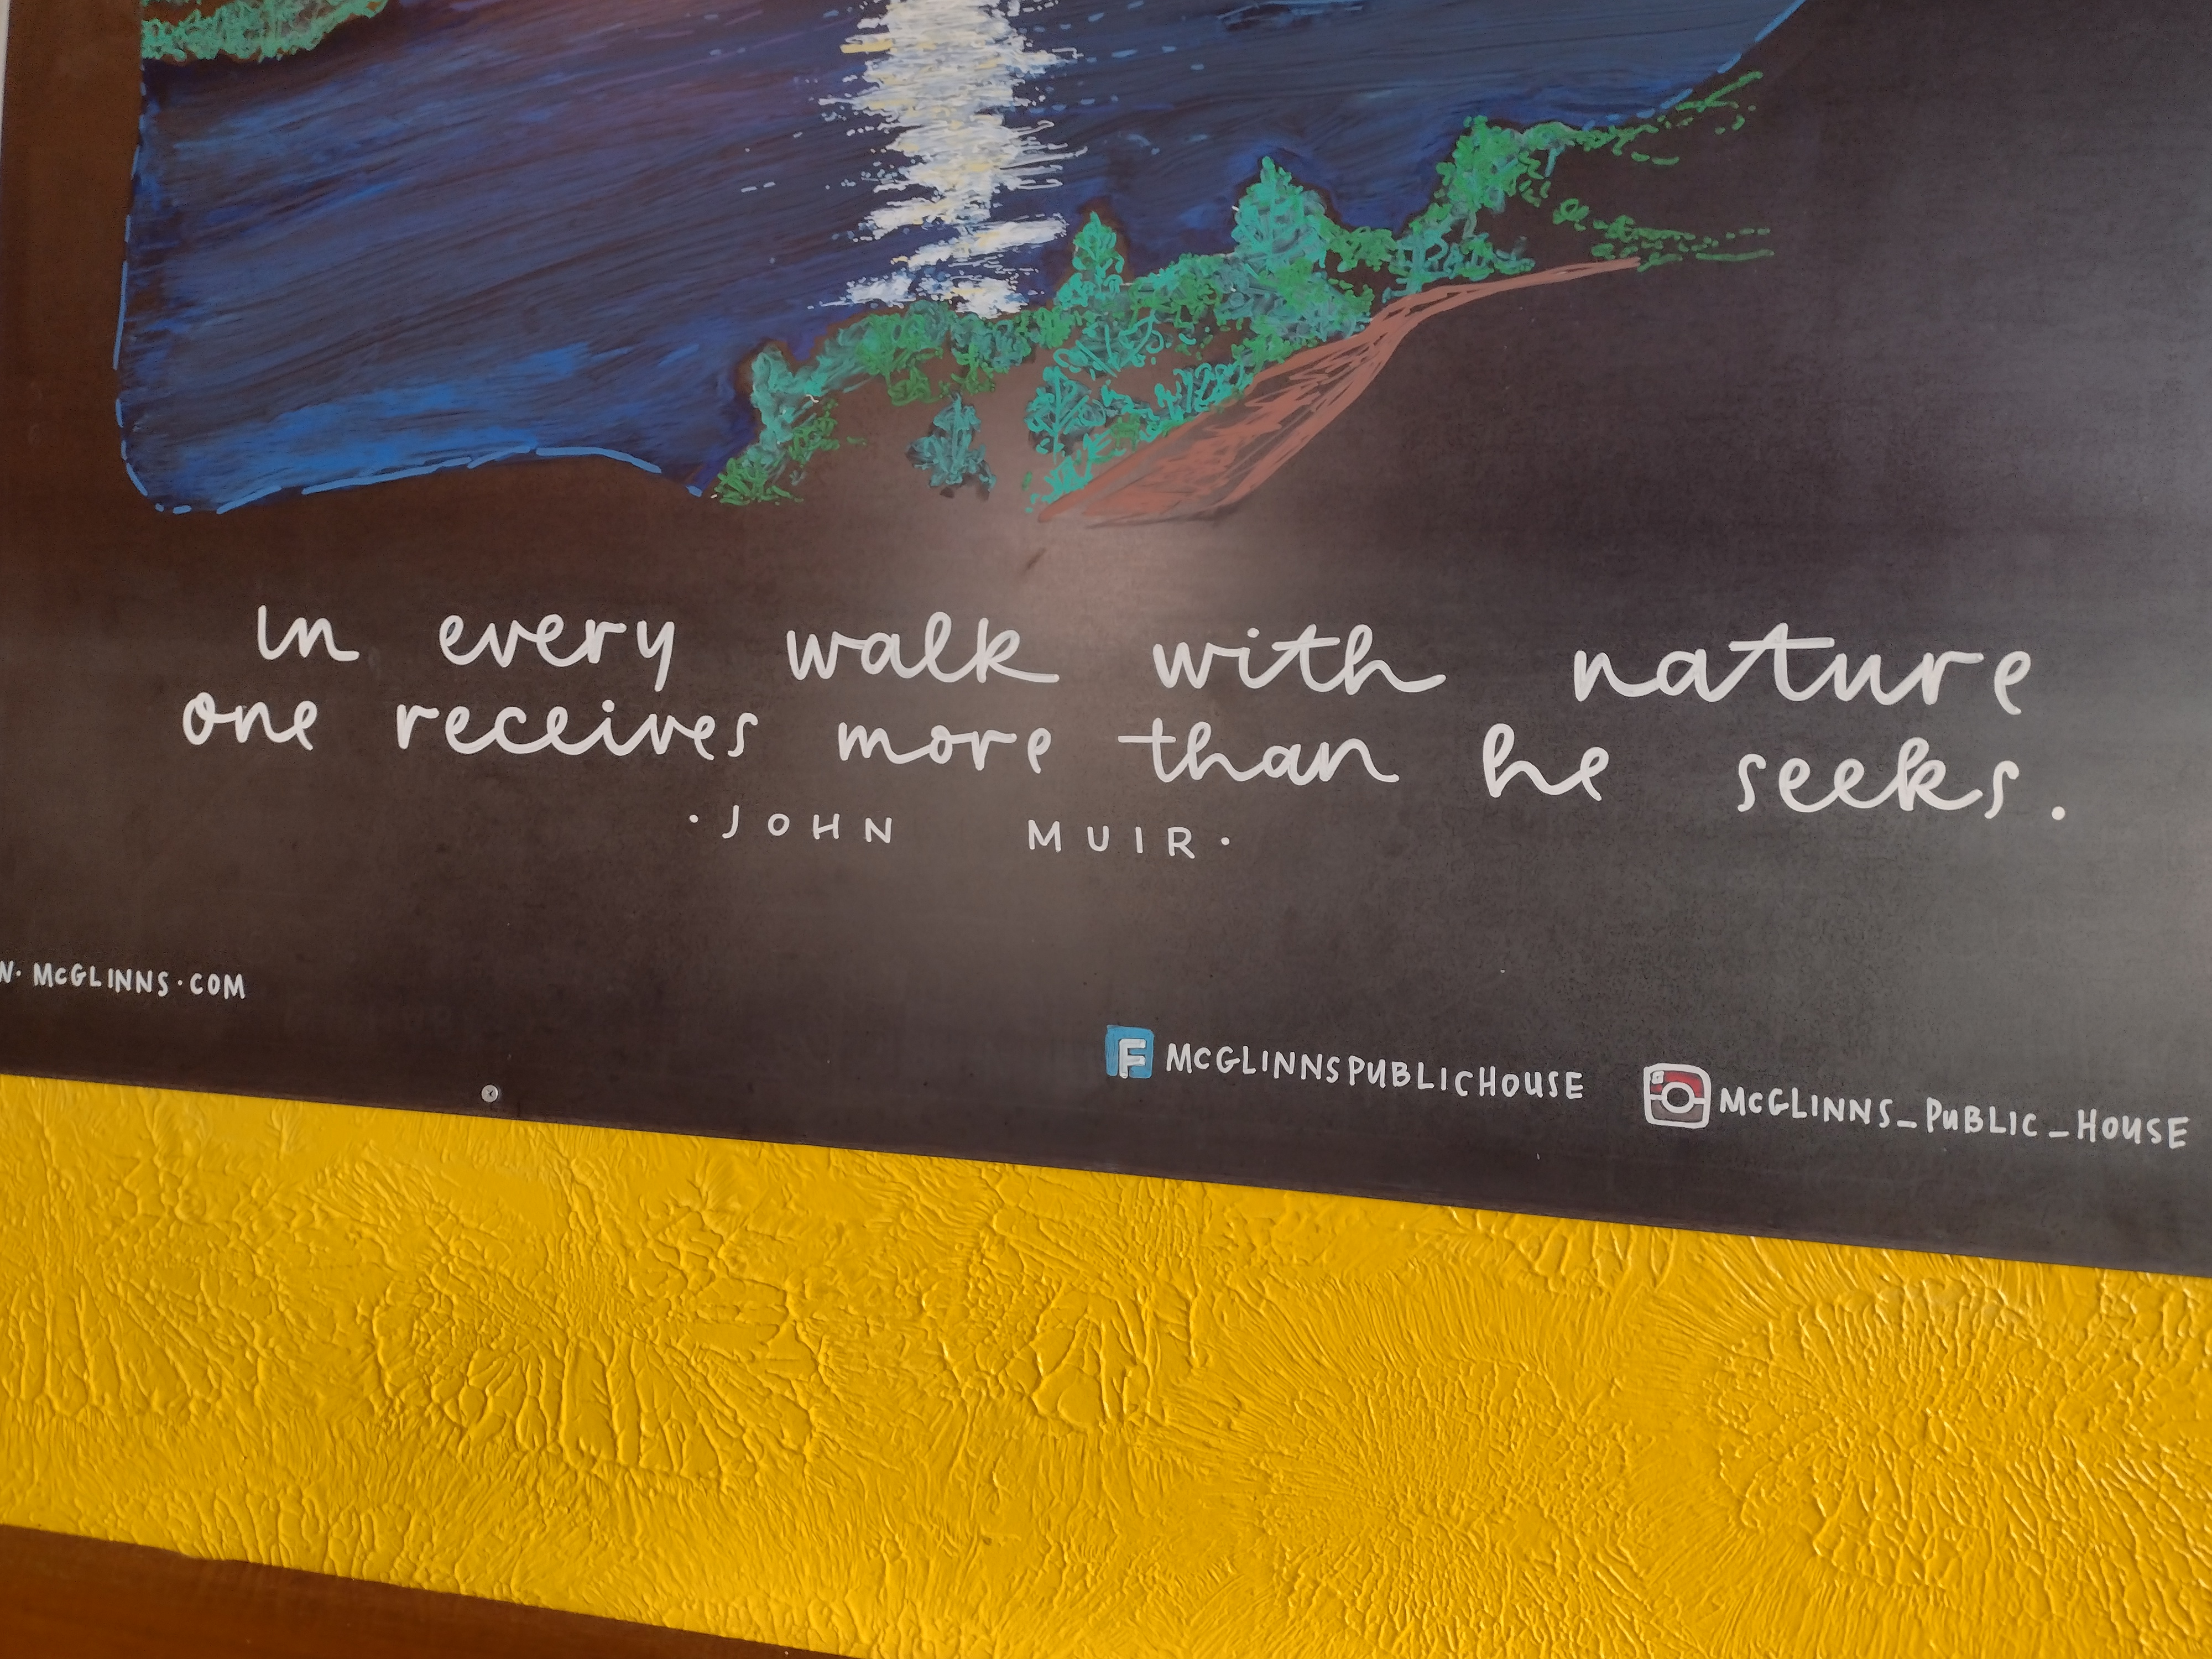 in every walk with nature
one receives more than he seeks.
·JOHN MUIR·
W·McGLINNS·COM
F McGLINNSPUBLICHOUSE
McGLINNS_PUBLIC_HOUSE